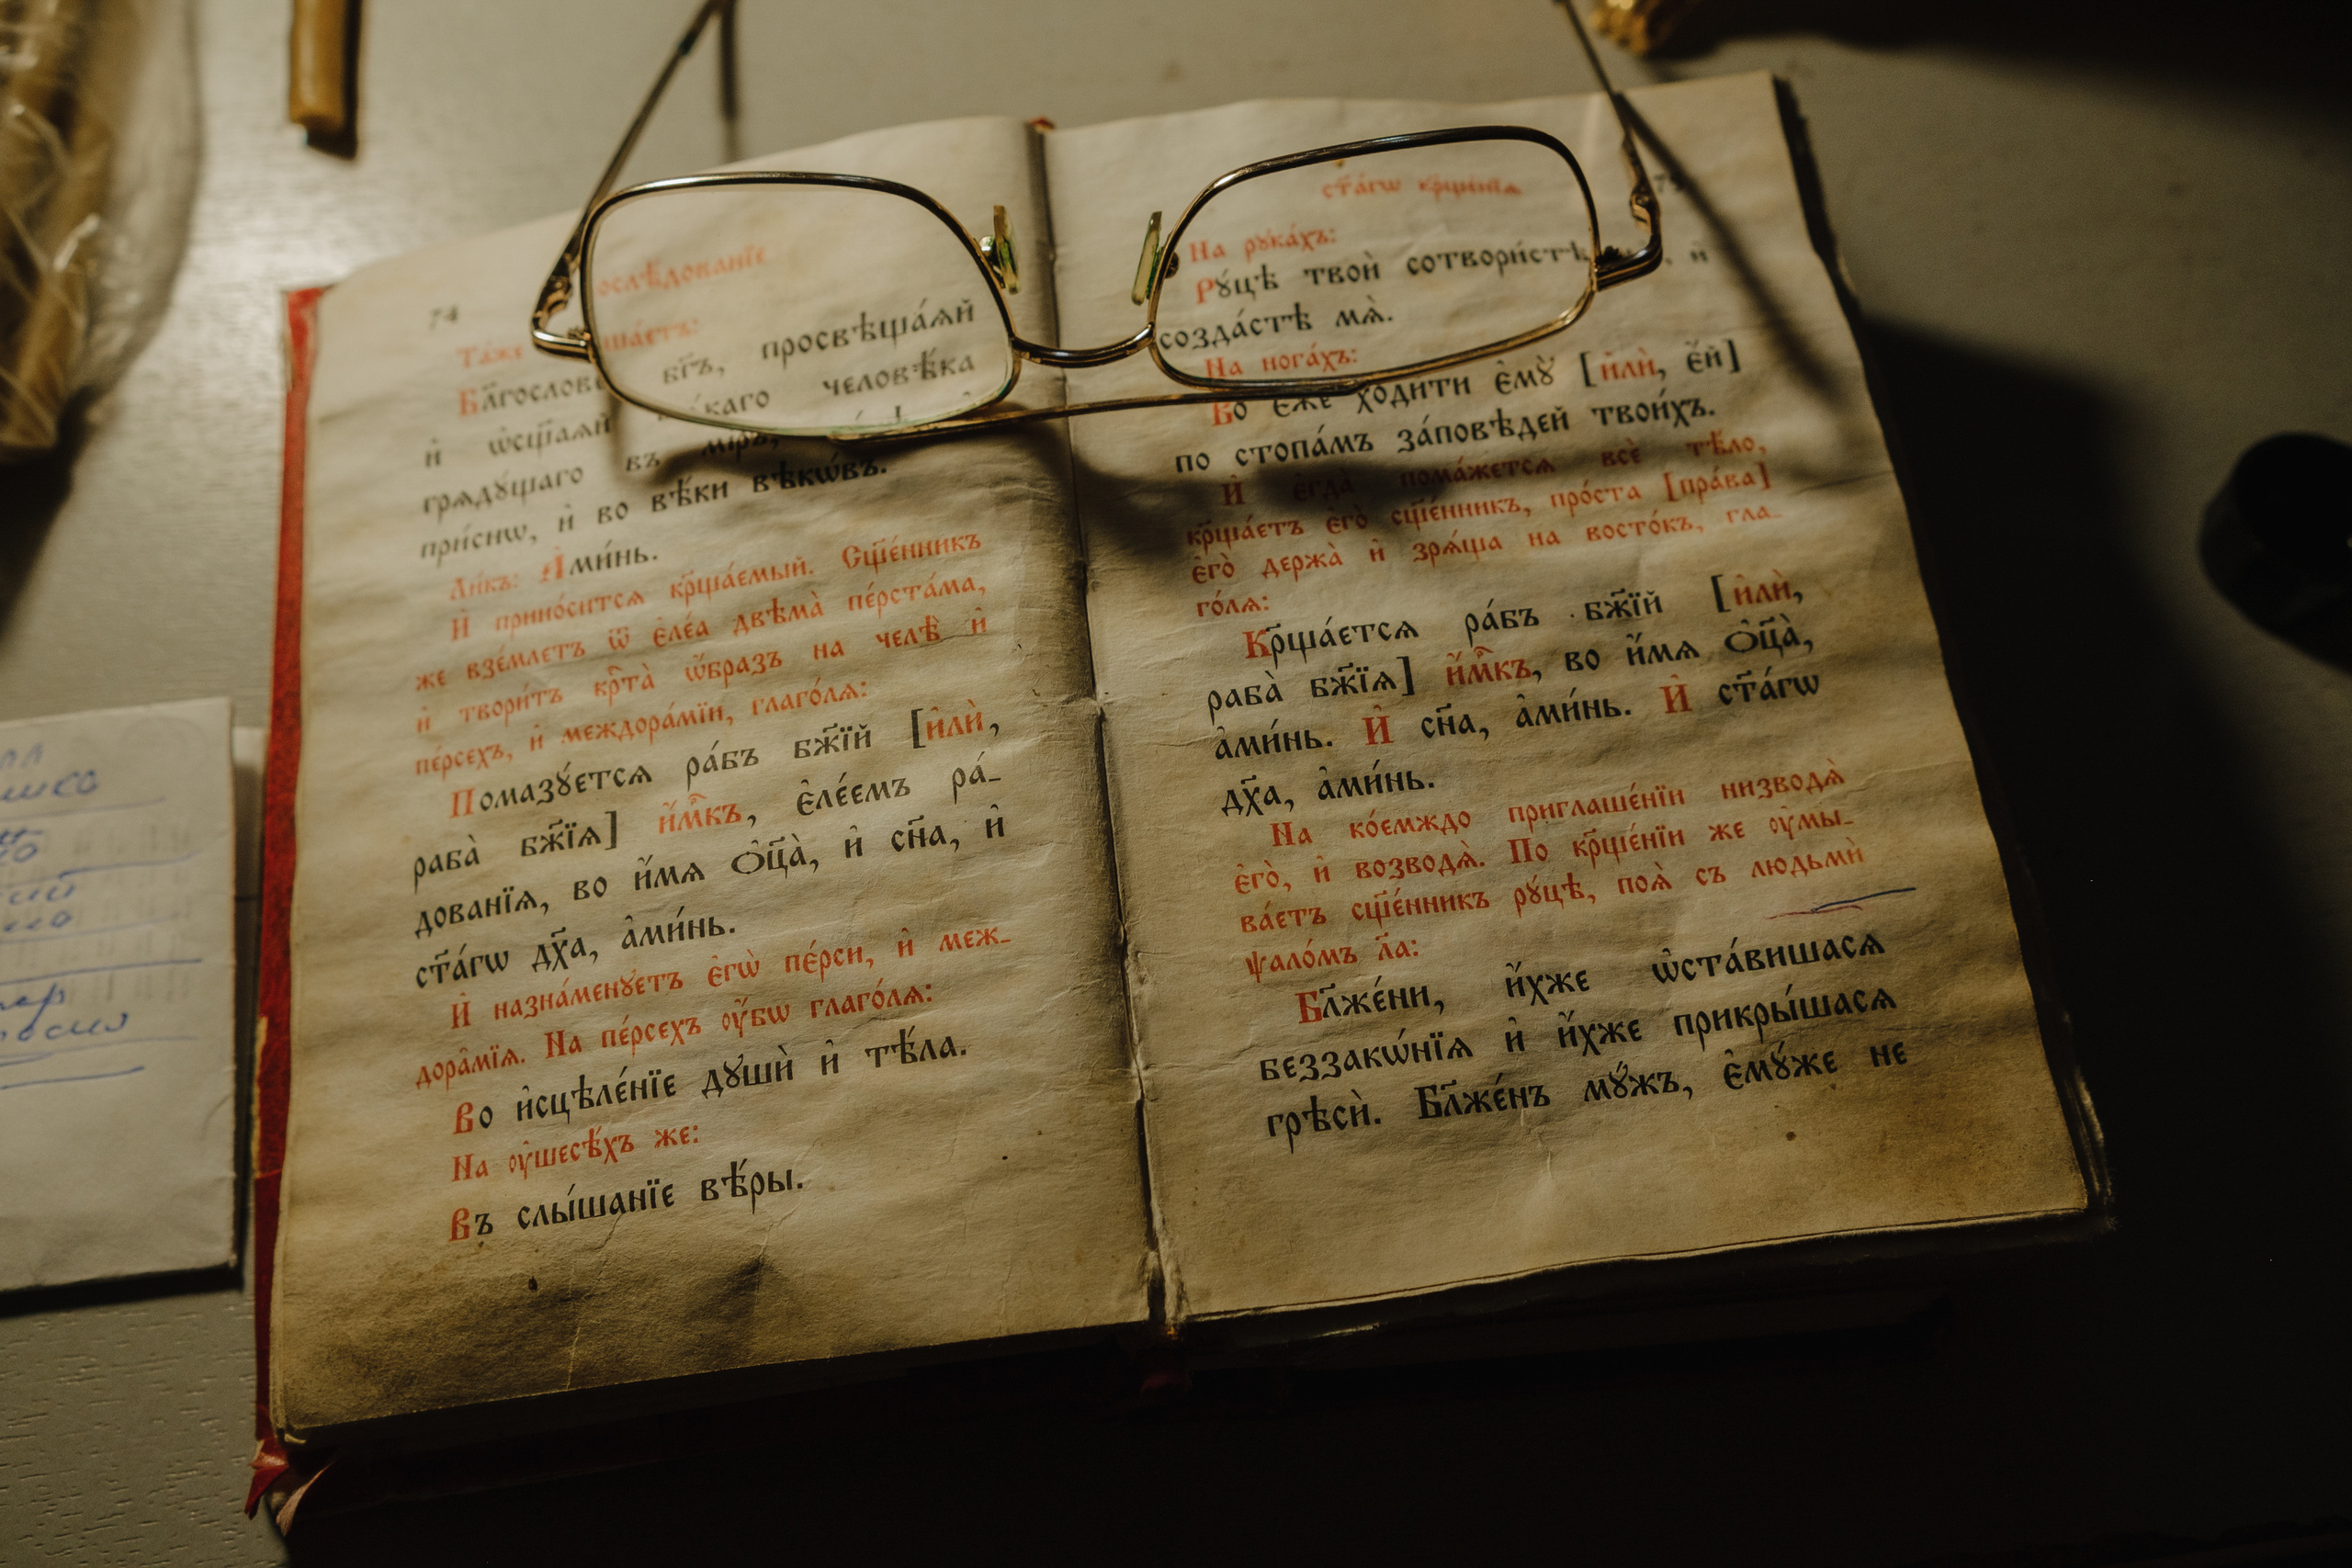 74
Благослове бг҃ъ, просвѣща́ѧй
и҆ ѡ҆сщ҃а́ѧй человѣ́ка
грѧдꙋ́щаго въ мі́ръ,
при́снѡ, и҆ во вѣ́ки вѣкѡ́въ.
Ли́къ: А҆ми́нь.
И҆ прино́ситсѧ кр҃ща́емый. Сщ҃е́нникъ
же взе́млетъ ѿ є҆ле́а двѣма̀ пе́рстама,
и҆ твори́тъ крⷭ҇та̀ ѡ҆́бразъ на челѣ̀ и҆
пе́рсехъ, и҆ междора́мїи, глаго́лѧ:
Помазꙋ́етсѧ ра́бъ бж҃їй [и҆лѝ,
раба̀ бж҃їѧ] и҆́мⷬ҇къ, є҆ле́емъ ра́-
дованїѧ, во и҆́мѧ ѻ҆ц҃а̀, и҆ сн҃а, и҆
ст҃а́гѡ дх҃а, а҆ми́нь.
И҆ назна́менꙋетъ є҆гѡ̀ пе́рси, и҆ меж-
дора̑мїѧ. На пе́рсехъ ᲂу҆́бѡ глаго́лѧ:
Во и҆сцѣле́нїе дꙋшѝ и҆ тѣ́ла.
На ᲂу҆шесѣ́хъ же:
Въ слы́шанїе вѣ́ры.
ст҃а́гѡ кр҃ще́нїѧ
На рꙋка́хъ:
Рꙋ́цѣ твоѝ сотвори́стѣ и҆
созда́стѣ мѧ̀.
На нога́хъ:
Во є҆́же ходи́ти є҆мꙋ̀ [и҆лѝ, є҆́й]
по стопа́мъ за́повѣдей твои́хъ.
И҆ є҆гда̀ пома́жетсѧ всѐ тѣ́ло,
кр҃ща́етъ є҆го̀ сщ҃е́нникъ, про́ста [пра́ва]
є҆го̀ держа̀ и҆ зрѧ́ща на восто́къ, гла-
го́лѧ:
Кр҃ща́етсѧ ра́бъ бж҃їй [и҆лѝ,
раба̀ бж҃їѧ] и҆́мⷬ҇къ, во и҆́мѧ ѻ҆ц҃а̀,
а҆ми́нь. И҆ сн҃а, а҆ми́нь. И҆ ст҃а́гѡ
дх҃а, а҆ми́нь.
На ко́емждо приглаше́нїи низводѧ̀
є҆го̀, и҆ возводѧ̀. По кр҃ще́нїи же ᲂу҆мы-
ва́етъ сщ҃е́нникъ рꙋ́цѣ, поѧ̀ съ людьмѝ
ѱало́мъ л҃а:
Бл҃же́ни, и҆̀хже ѡ҆ста́вишасѧ
беззакѡ́нїѧ и҆ и҆̀хже прикры́шасѧ
грѣсѝ. Бл҃же́нъ мꙋ́жъ, є҆мꙋ́же не